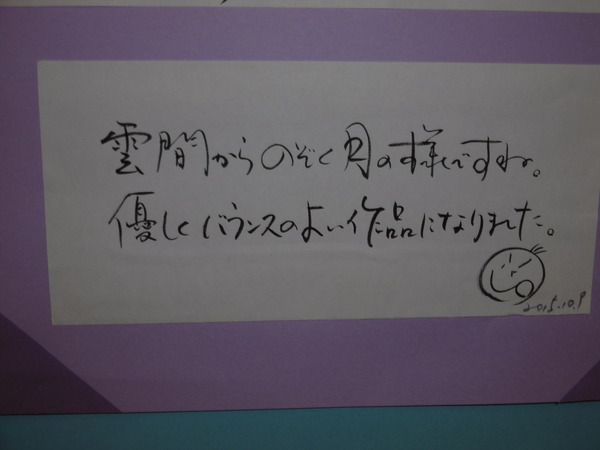 雲間からのぞく月の様ですね。
優しくバランスのよい作品になりました。
2015.10.9